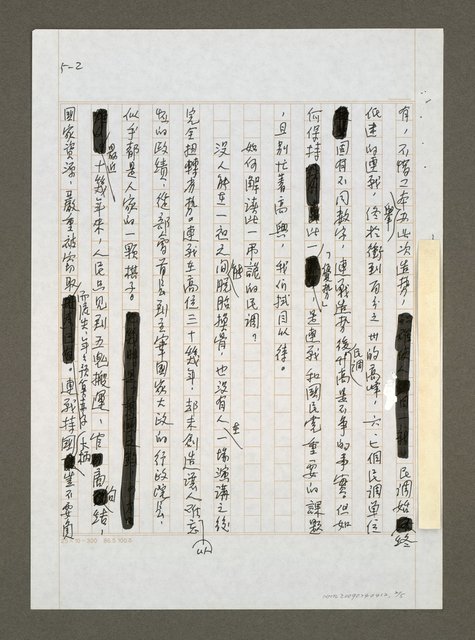 5-2
有，不惜工本五次造勢，民調始終
低迷的連戰，終於衝到百分之卅的高峰，六、七個民調單位
固有不同數字，連戰造勢後民調升高是不爭的事實。但如
何保持此一「優勢」，是連戰和國民黨重要的課題
，且別忙著高興，我們拭目以待。
如何解讀此一弔詭的民調？
沒人能在一夜之間脫胎換骨，也沒有人能在一場演講之後
完全扭轉劣勢。連戰立高位二十幾年，却未創造讓人難以忘
的政績，從部會首長到主宰國家大政的行政院長，
似乎都是人家的一顆棋子。
最近十幾年來，人民只見到五鬼搬運，官商勾結，
國家資源，嚴重被竊取，連戰持國黨不要負
10-300 86.5.100本